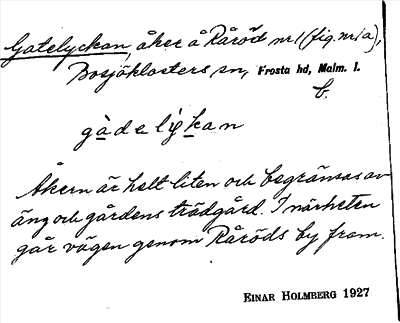 Gatelyckan, åker å Råröd nr 1 (fig. nr 1a),
Bosjöklosters sn, Frosta hd, Malm. l.
b.
gàdelykan
Åkern är helt liten och begränsas av
äng och gårdens trädgård. I närheten
går vägen genom Råröds by fram.
EINAR HOLMBERG 1927